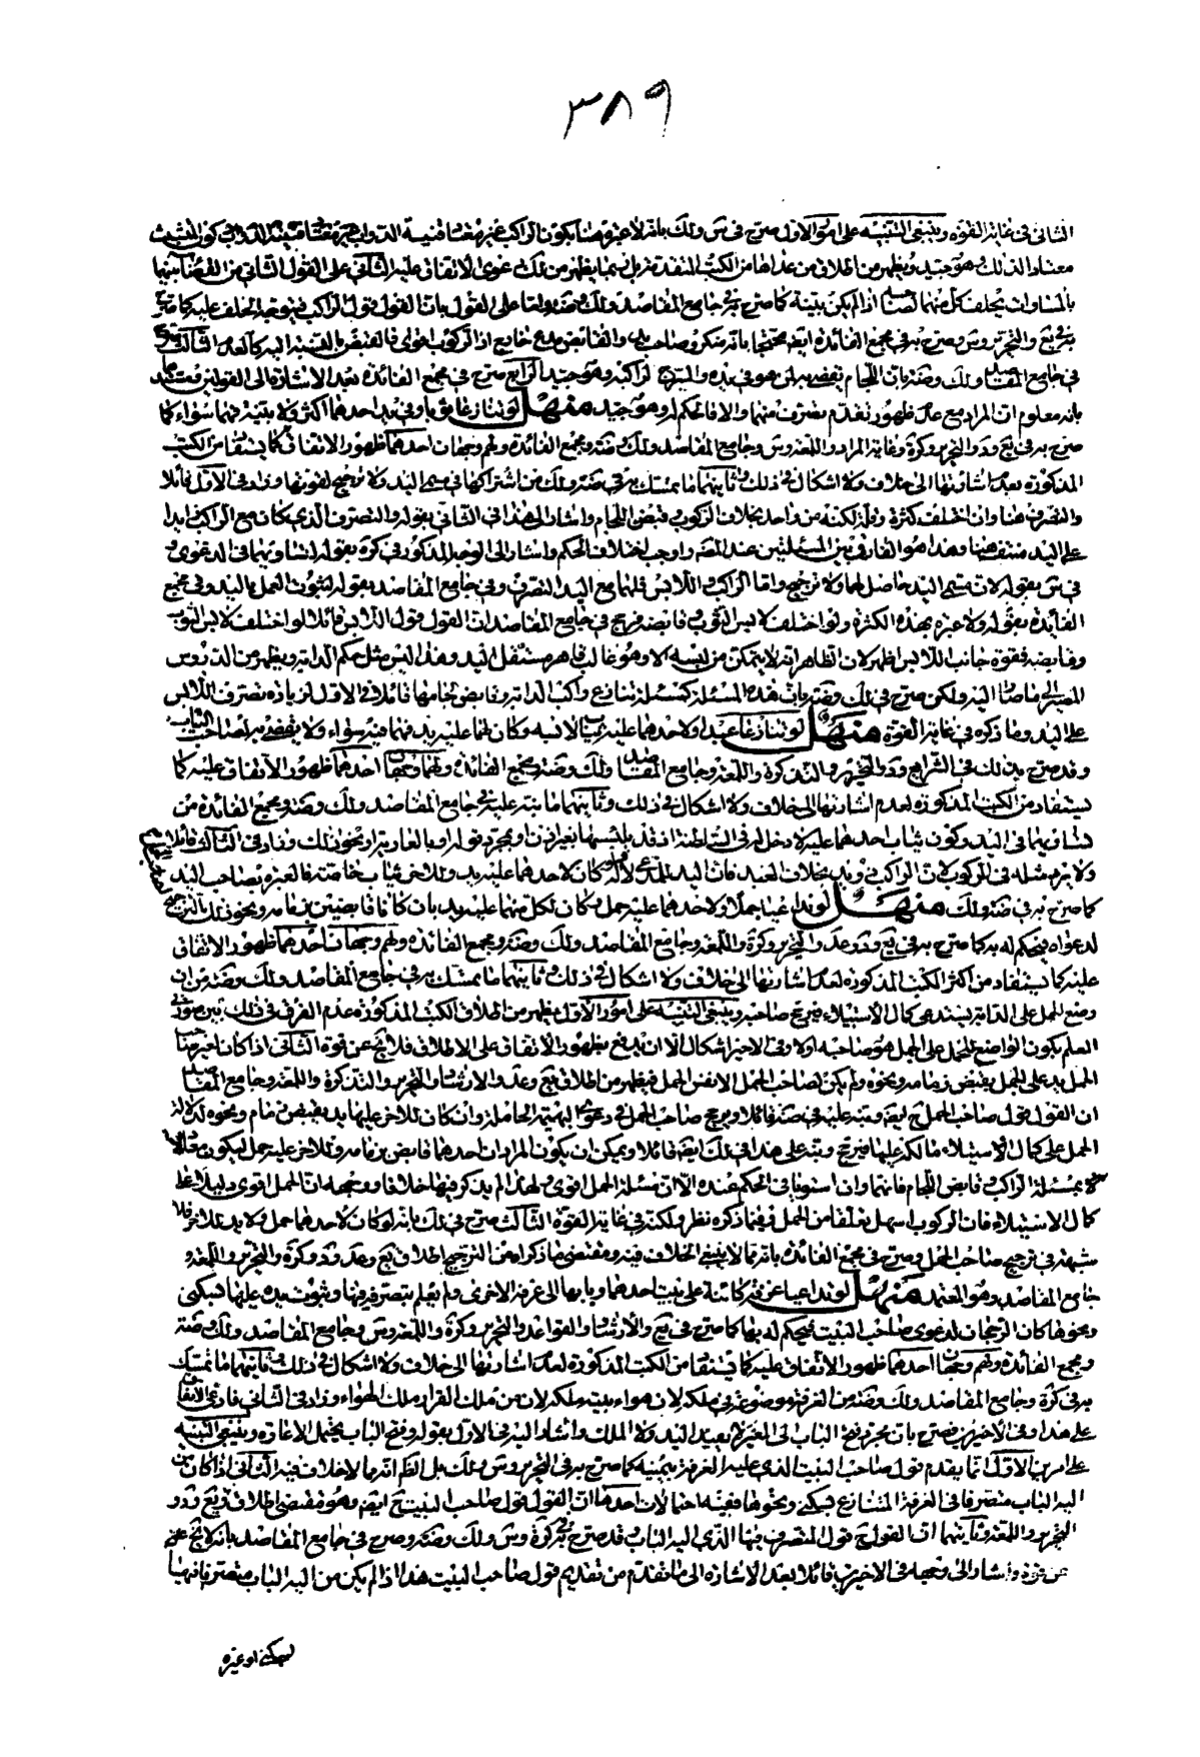 ٣٨٩
الثانى فى غاية القوة وينبغى التنبيه على امور الاول صرح فى س ولك بانه لا عبرة هنا بكون الراكب غير معتاد قنية الدواب
معتاد الذلك وهو جيد ويظهر من اطلاق من عداهما من الكتب المتقدمة
بالمساوات يحلف كل منهما لصاحبه اذا لم يكن بينة كما صرح به فى جامع المقاصد ولك وضة واما على القول بان القول قول الراكب فيتوجه الحلف عليه كما صرح
به فى يع والتحرير وس وصرح به فى مجمع الفائدة ايضا محتجا بانه منكر وصاحب يد والقابض مدع خارج اذ الركوب اقوى من القبض بالنسبة اليه كالعدم الثالث صرح
فى جامع المقاصد ولك وضة بان اللجام يقضى به لمن هو فى يده والسرج لراكبه وهو جيد الرابع صرح فى مجمع الفائدة بعد الاشارة الى القولين
بانه معلوم ان المراد مع عدم ظهور تقدم تصرف منهما والا فالحكم له وهو جيد منهل لو تنازعا ثوبا وفى يد احدهما اكثر ولا بينة فهما سواء كما
صرح به فى يع وعد والتحرير وكرة وغاية المراد واللمعة وس وجامع المقاصد ولك وضة ومجمع الفائدة ولهم وجهان احدهما ظهور الاتفاق كما يستفاد من الكتب
المذكورة بعدم اشارتها الى خلاف ولا اشكال فى ذلك وثانيهما ما تمسك به فى ضة ولك من اشتراكهما فى مسمى اليد ولا ترجيح لقوتها وزاد فى الاول قائلا
والتصرف هنا وان اختلف كثرة وقلة لكنه من واحد بخلاف الركوب وقبض اللجام واشار الى هذا فى الثانى بقوله والتصرف الذى كان مع الراكب زايدا
على اليد منتف هنا وهذا هو الفارق بين المسئلتين عند المصه واوجب اختلاف الحكم واشار الى الوجه المذكور فى كرة بقوله لتساويهما فى الدعوى و
فى س بقوله لان مسمى اليد حاصل لهما ولا ترجيح واما الراكب واللابس فلهما مع اليد التصرف وفى جامع المقاصد بقوله لثبوت العمل باليد وفى مجمع
الفائدة بقوله ولا عبرة بهذه الكثرة ولو اختلف لابس الثوب وقابضه فرجح فى جامع المقاصد ان القول قول اللابس قائلا لو اختلف لابس الثوب
وقابضه فقوة جانب اللابس اظهر لان الظاهر انه لا يتمكن من لبسه الا وهو غالب قاهر مستقل باليد وهذا ليس مثل حكم الدابة ويظهر من الدروس
المصير الى هنا ولكن صرح فى لك وضة بان هذه المسئلة كمسئلة تنازع راكب الدابة وقابض لجامها قائلا فى الاول لزيادة تصرف اللابس
على اليد وما ذكره فى غاية القوة منهل لو تنازعا عبدا ولاحدهما عليه ثياب لابسه وكان لهما عليه يد فهما فيه سواء ولا يقضى به لصاحب الثياب
وقد صرح بذلك فى الشرايع وعد والتحرير والتذكرة واللمعة وجامع المقاصد ولك وضة ومجمع الفائدة ولهم وجهان احدهما ظهور الاتفاق عليه كما
يستفاد من الكتب المذكورة لعدم اشارتها الى خلاف ولا اشكال فى ذلك وثانيهما ما نبه عليه فى جامع المقاصد ولك وضة ومجمع الفائدة من
تساويهما فى اليد وكون ثياب احدهما عليه لا دخل له فى السلطنة اذ قد يلبسها بغير اذن او بمجرد قوله او بالعارية او نحو ذلك وزاد فى الثالث قائلا
ولا يرد مثله فى الركوب لان الراكب ذو يد بخلاف العبد فان اليد للمدعى لا له كان لاحدهما عليه يد وللاخر ثياب خاصة فالعبرة بصاحب اليد
كما صرح به فى ضة ولك منهل لو تداعيا جملا ولاحدهما عليه حمل وكان لكل منهما عليه يد بان كانا قابضين بزمامه ونحو ذلك الترجيح
لدعواه فيحكم له به كما صرح به فى يع وشد وعد والتحرير وكرة واللمعة وجامع المقاصد ولك وضة ومجمع الفائدة ولهم وجهان احدهما ظهور الاتفاق
عليه كما يستفاد من اكثر الكتب المذكورة لعدم اشارتها الى خلاف ولا اشكال فى ذلك وثانيهما ما تمسك به فى جامع المقاصد ولك وضة من ان
وضع الحمل على الدابة يستدعى كمال الاستيلاء فيرجح صاحبه وينبغى التنبيه على امور الاول يظهر من اطلاق الكتب المذكورة عدم الفرق فى ذلك بين صورتى
العلم بكون الواضع للحمل على الجمل هو صاحبه اولا وفى الاخير اشكال الا ان يدفع بظهور الاتفاق على الاطلاق فلا يخ عن قوة الثانى اذا كان لغير صاحب
الحمل يد على الجمل بقبض زمامه ونحوه ولم يكن لصاحب الحمل الا نفس الحمل فيظهر من اطلاق يع وعد والارشاد والتحرير والتذكرة واللمعة وجامع المقاصد
ان القول قول صاحب الحمل ح ايضا ونبه عليه فى ضة قائلا ويرجح صاحب الحمل فى دعوى البهيمة الحاملة وان كان للاخر عليها يد بقبض زمام ونحوه لدلالة
الحمل على كمال الاستيلاء مالكه عليها فيرجح ونبه على هذا فى لك ايضا قائلا ويمكن ان يكون المراد ان احدهما قابض بزمامه وللاخر عليه حمل ليكون مقابلا
لمسئلة الراكب وقابض اللجام فانهما وان استويا فى الحكم عنده الا ان مسئلة الحمل اقوى ولهذا لم يذكر فيها خلافا ووجهه ان الحمل اقوى دليلا على
كمال الاستيلاء فان الركوب اسهل تعلقا من الحمل وفيما ذكره نظر ولكنه فى غاية القوة الثالث صرح فى لك بانه لو كان لاحدهما حمل ولا يد للاخر فلا
شبهة فى ترجيح صاحب الحمل وصرح فى مجمع الفائدة بانه مما لا ينبغى الخلاف فيه ومقتضى ما ذكرا من الترجيح اطلاق يع وعد وشد وكرة والتحرير واللمعة و
جامع المقاصد وهو المعتمد منهل لو تداعيا غرفة كائنة على بيت احدهما وبابها الى غرفة الاخر ولم يعلم بتصرفه فيها وثبوت يده عليها بسكنى
ونحوها كان الرجحان لدعوى صاحب البيت فيحكم له بها كما صرح فى يع والارشاد والقواعد والتحرير وكرة واللمعة وس وجامع المقاصد ولك وضة
ومجمع الفائدة ولهم وجهان احدهما ظهور الاتفاق عليه كما يستفاد من الكتب المذكورة لعدم اشارتها الى خلاف ولا اشكال فى ذلك وثانيهما ما تمسك
به فى كرة وجامع المقاصد ولك وضة من الغرفة موضوعة فى ملكه لان هواء بيته ملكه لان من ملك القرار ملك الهواء وزاد فى الثانى فادعى الاتفاق
على هذا وفى الاخيرين فصرح بان مجرد فتح الباب الى الغير لا يفيد اليد ولا الملك واشار اليه فى الاول بقوله وفتح الباب يحتمل الاعارة وينبغى التنبيه
على امرين الاول انما يقدم قول صاحب البيت الذى عليه الغرفة بيمينه كما صرح به فى التحرير وس ولك بل الظ انه مما لا خلاف فيه الثانى اذا كان من
اليه الباب متصرفا فى الغرفة المتنازع بسكنى ونحوها ففيه احتمالان احدهما ان القول قول صاحب البيت ح ايضا وهو مقتضى اطلاق يع وشد
التحرير واللمعة وثانيهما ان القول ح قول المتصرف فيها الذى اليه الباب وقد صرح به فى كرة وس ولك وضة وصرح فى جامع المقاصد بانه لا يخ عن
من قوة واشار الى وجهه فى الاخير بقائلا بعد الاشارة الى ما تقدم من تقديم قول صاحب البيت هذا اذا لم يكن من اليه الباب متصرفا فيها
بسكنى او غيره